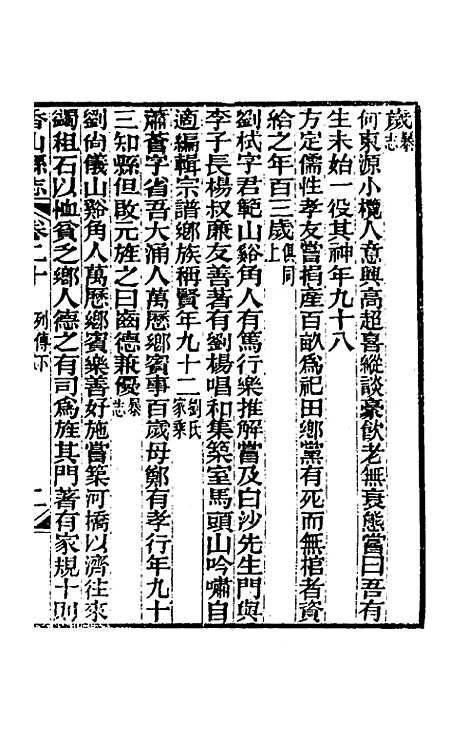 歲暴志
何東源小欖人意興高超喜縱談豪飲老無衰態嘗曰吾有
生未始一役其神年九十八
方定儒性孝友嘗捐產百畝爲祀田鄉黨有死而無棺者資
給之年百三歲俱同上
劉栻字君範山谿角人有篤行樂推解嘗及白沙先生門與
李子長楊叔廉友善著有劉楊唱和集築室馬頭山吟嘯自
適編輯宗譜鄉族稱賢年九十二劉氏家乘
蕭蒼字省吾大涌人萬歷鄉賓事百歲母鄭有孝行年九十
三知縣但啟元旌之曰齒德兼優暴志
劉尚儀山谿角人萬歷鄉賓樂善好施嘗築河橋以濟往來
蠲租石以恤貧乏鄉人德之有司爲旌其門著有家規十則
香山縣志 卷二十 列傳下 二